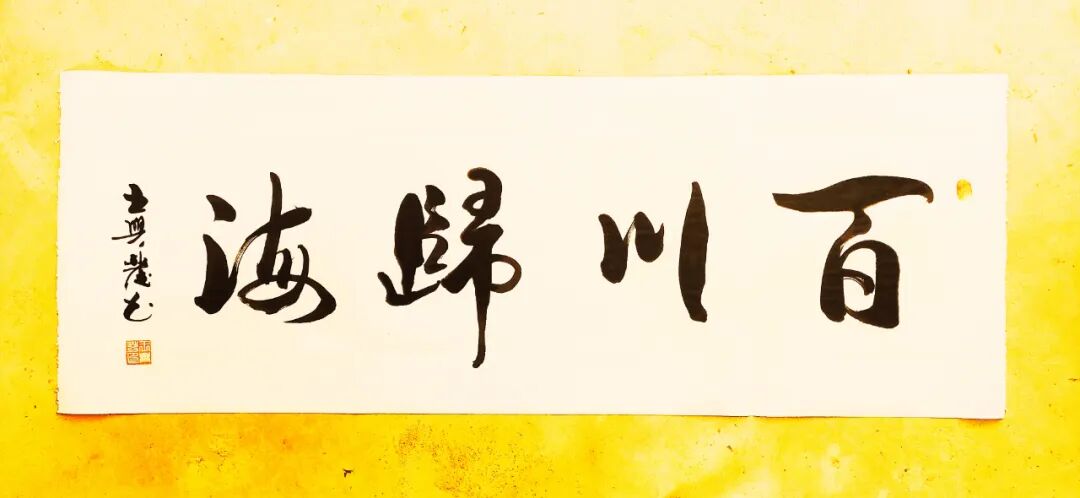 百川歸海